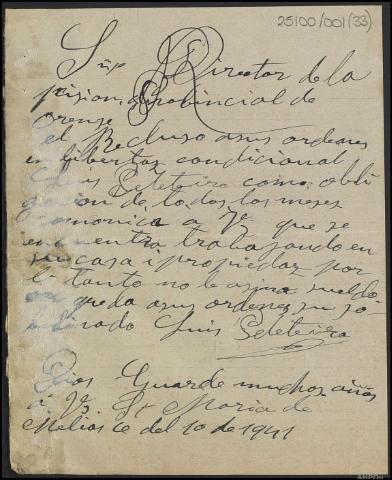 25100/001(33)
Sñr Director de la
prision Probincial de
orense
el Recluso asus ordenes
en libertaz condicional
Luis Seteteiro como obli
gacion de todos los meses
comonica a V. que se
encuentra trabajando en
su casa i propiedaz por
lo tanto no le asina sueldo
queda asus ordenes su so
Luis Seteteiro
Dios Guarde muchos años
a V. Sta Maria de
Melias 6 del 10 de 1941
AHPOU